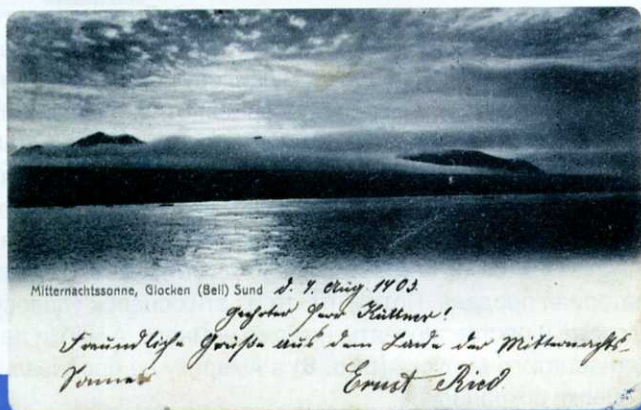 Mitternachtssonne, Glocken (Bell) Sund d. 7. Aug. 1903.
Geehrter Herr Küttner!
Freundliche Grüße aus dem Lande der Mitternachts-
Sonne
Ernst